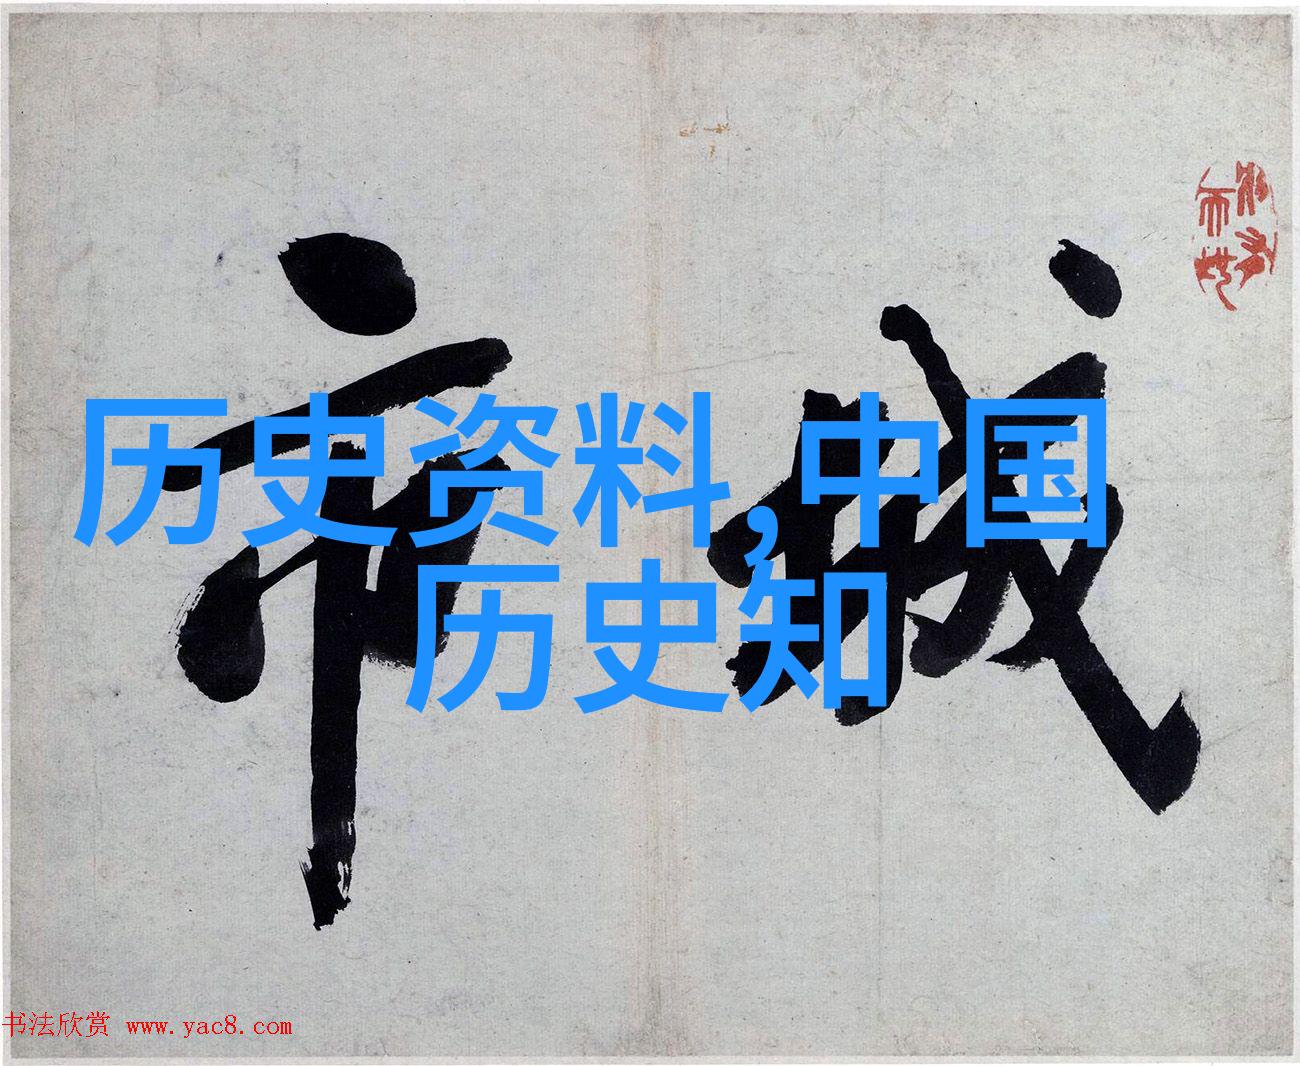 历史资料,中国
历史知
城市
书法欣赏 www.yac8.com